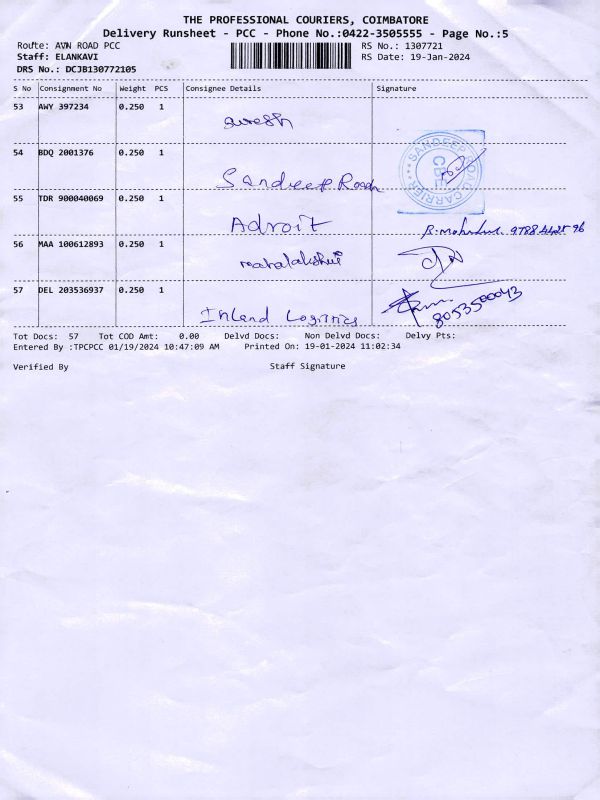 THE PROFESSIONAL COURIERS, COIMBATORE
Delivery Runsheet - PCC - Phone No.:0422-3505555 - Page No.:5
Route: AVN ROAD PCC RS No.: 1307721
Staff: ELANKAVI RS Date: 19-Jan-2024
DRS No.: DCJB130772105
S No Consignment No Weight PCS Consignee Details Signature
53 AWY 397234 0.250 1
suresh
54 BDQ 2001376 0.250 1
Sandeep Road
SANDEEP ROAD CARRIER
CBE
55 TDR 900040069 0.250 1
Adroit
56 MAA 100612893 0.250 1
mahalakshmi
57 DEL 203536937 0.250 1
Inland Logistics 8053500043
Tot Docs: 57 Tot COD Amt: 0.00 Delvd Docs: Non Delvd Docs: Delvy Pts:
Entered By :TPCPCC 01/19/2024 10:47:09 AM Printed On: 19-01-2024 11:02:34
Verified By Staff Signature